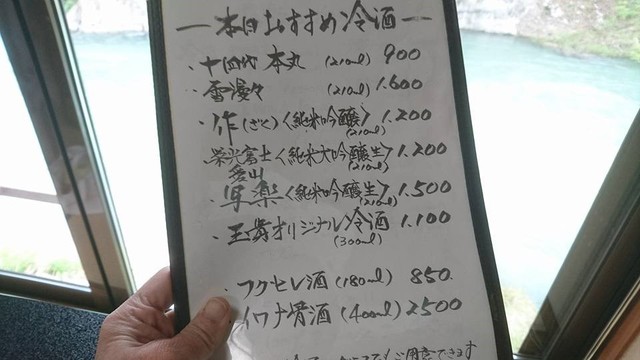 —本日おすすめ冷酒—
・十四代 本丸 (210ml) 900
・雪漫々 (210ml) 1.600
・作(ざく)〈純米吟醸〉1.200
(210ml)
栄光冨士〈純米大吟醸生〉1.200
(210ml)
愛山
・写楽〈純米吟醸生〉1.500
(210ml)
・玉翠オリジナル冷酒 1.100
(300ml)
・フクセレ酒 (180ml) 850.
イワナ骨酒 (400ml) 2500